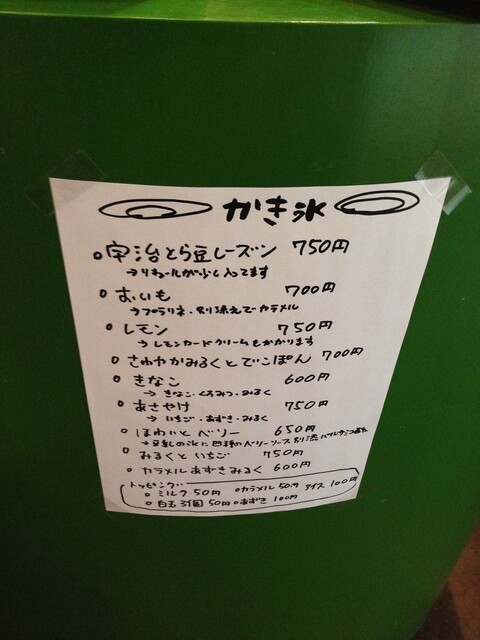 かき氷
宇治とら豆レーズン 750円
→リキュールが少し入ってます
おいも 700円
→プラリネ・別添えでカラメル
レモン 750円
→レモンカードクリームもかかります
さわやかみるくとでこぽん 700円
きなこ 600円
→きなこ・くろみつ・みるく
あさやけ 750円
→いちご・あずき・みるく
ほわいとベリー 650円
→豆乳の氷に四種のベリーソース 別添
みるくといちご 750円
カラメルあずきみるく 600円
トッピング
ミルク 50円 カラメル 50円 アイス 100円
白玉3個 50円 あずき 100円